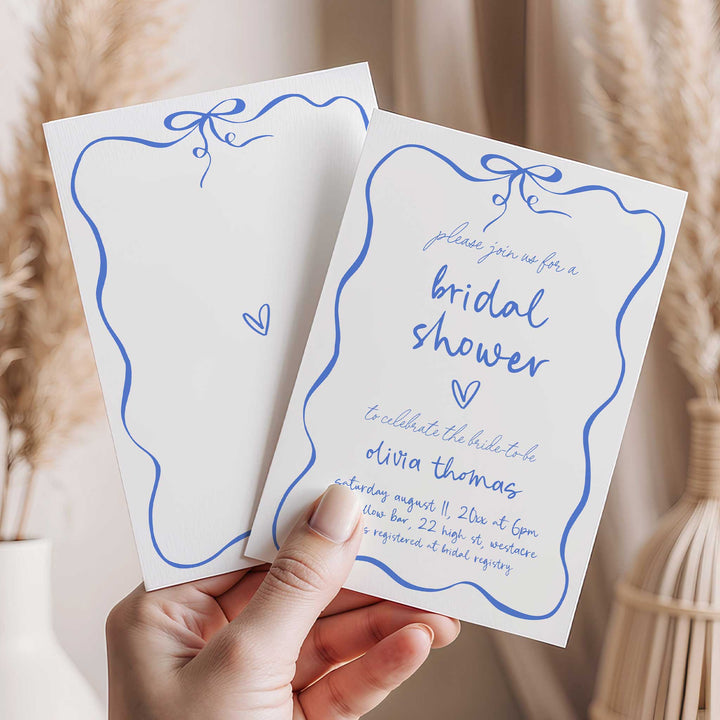 please join us for a
bridal
shower
to celebrate the bride-to-be
olivia thomas
saturday august 11, 20xx at 6pm
llow bar, 22 high st, westacre
s registered at bridal registry